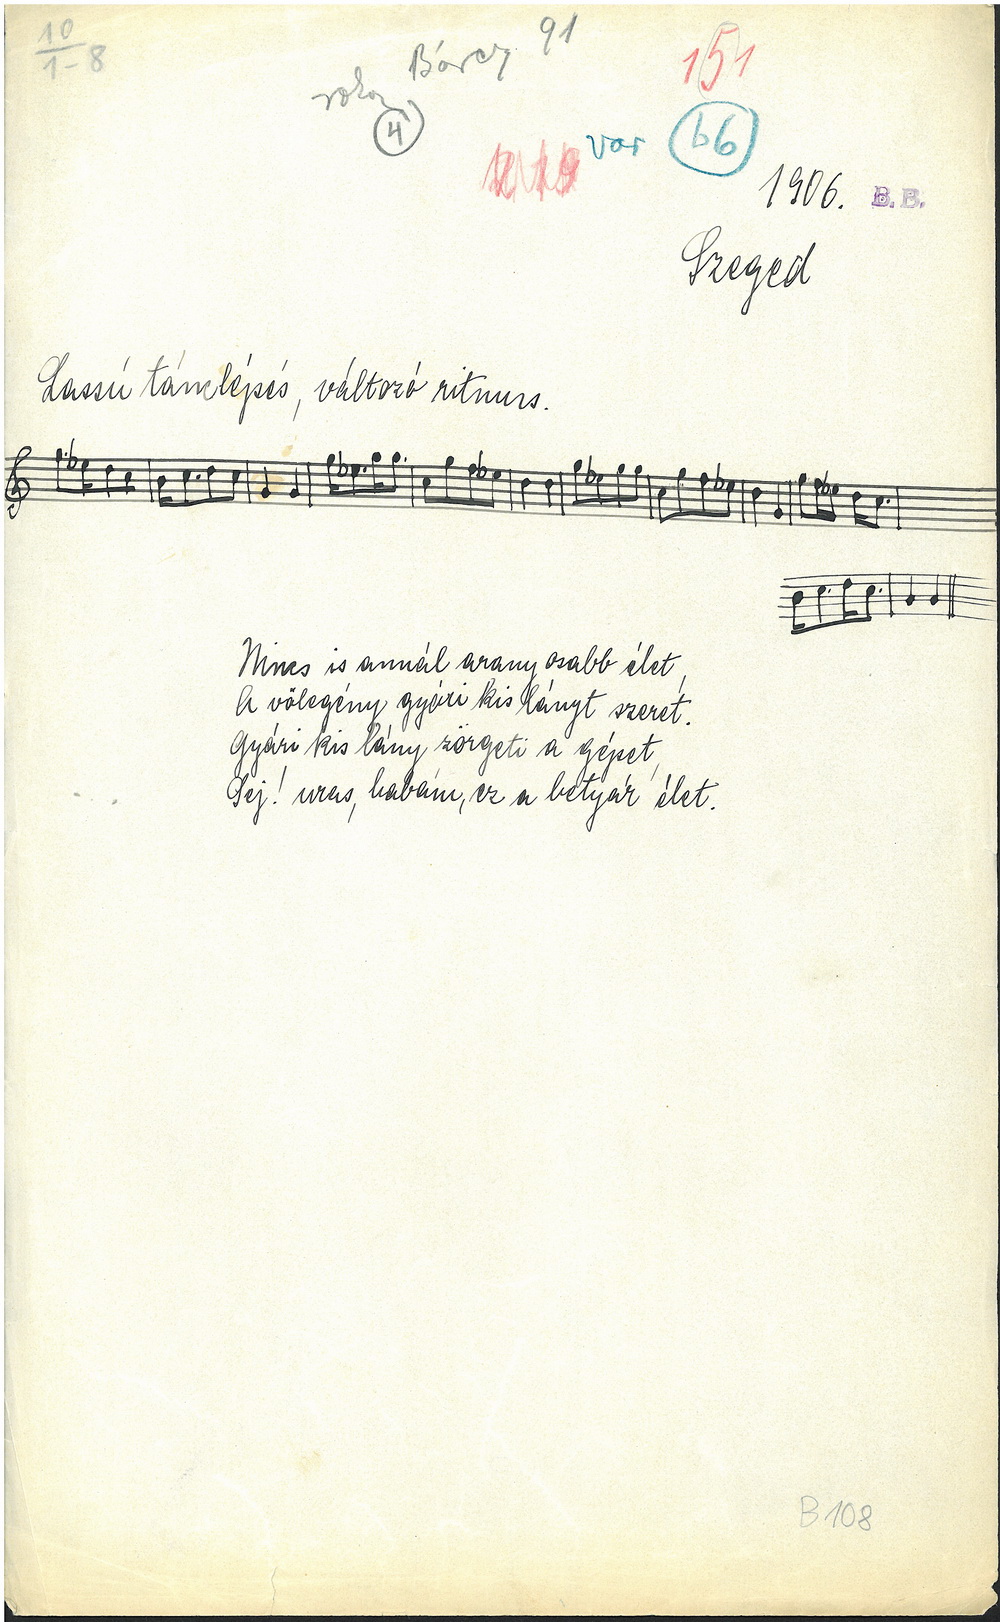 10
1-8
Bárczy 91
rokon
4
151
var 66
1906. B.B.
Szeged
Lassú tánclépés, változó ritmus.
Nincs is annál aranyosabb élet,
A vőlegény gyári kis lányt szeret.
Gyári kis lány zörgeti a gépet,
Sej! uras, babám, ez a betyár élet.
B 108